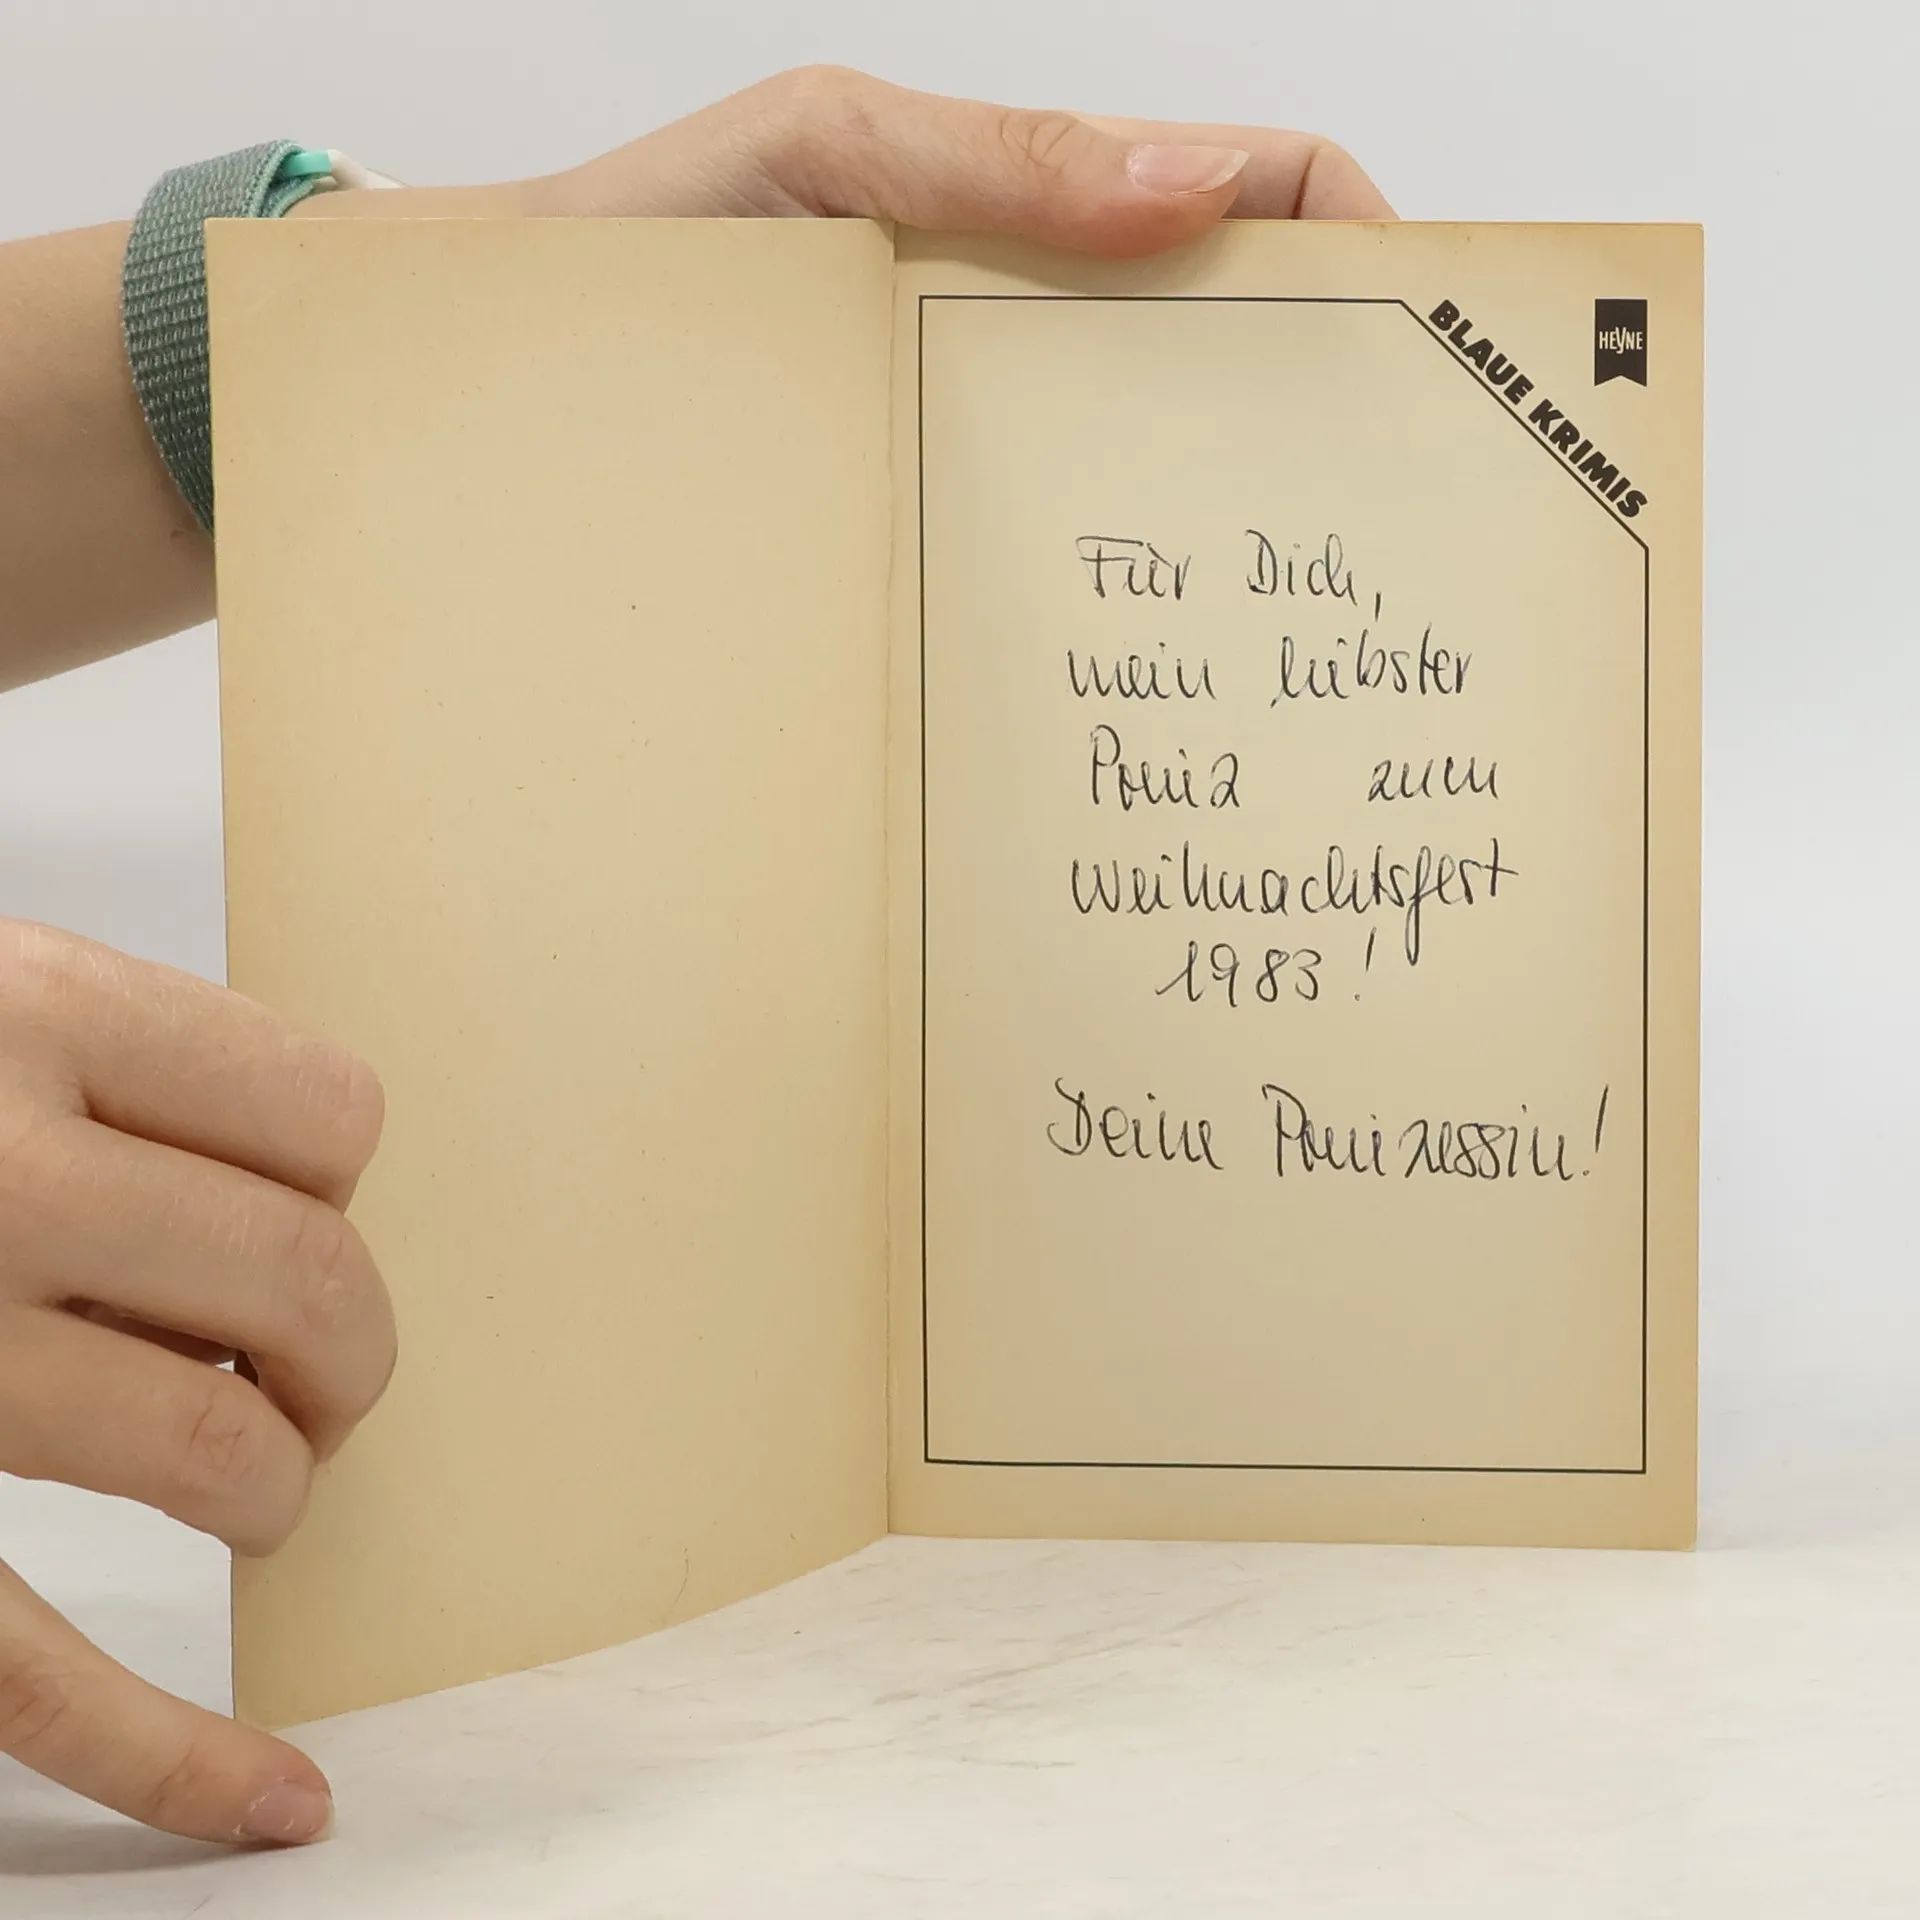 BLAUE KRIMIS
HEYNE
Für Dich,
mein liebster
Prinz zum
Weihnachtsfest
1983!
Deine Prinzessin!